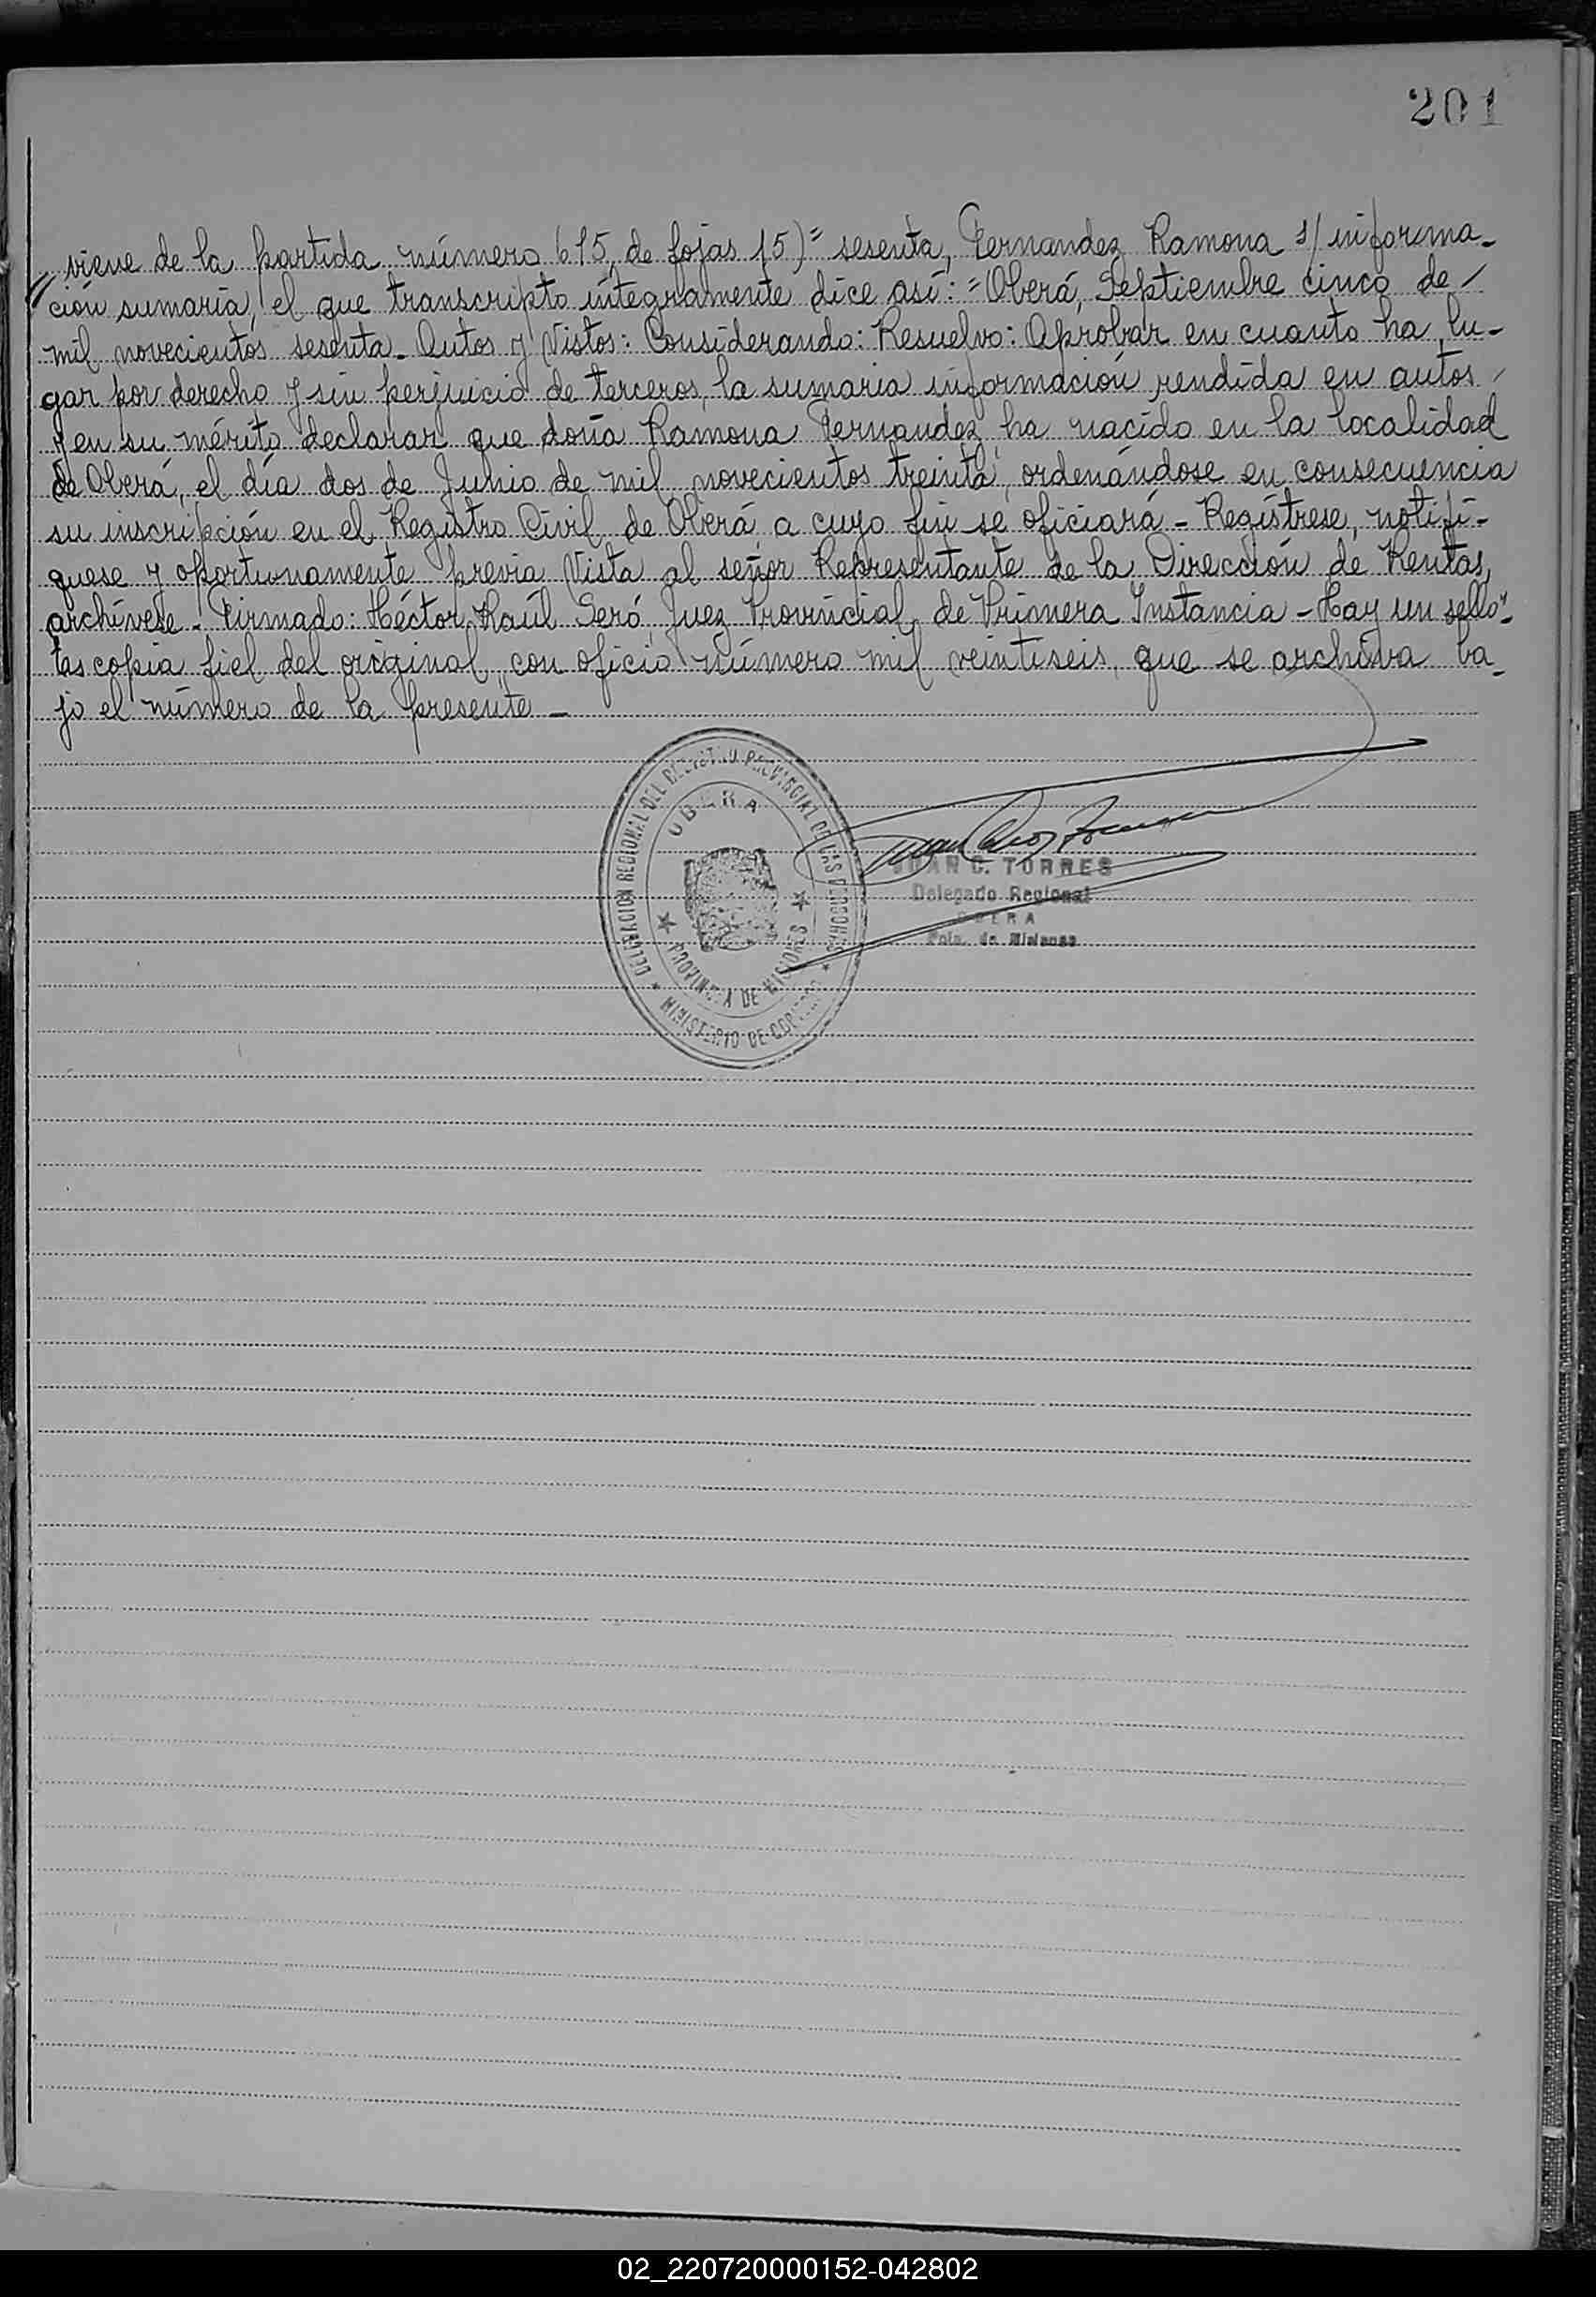 201
viene de la partida número 615, de fojas 15)= sesenta, Fernandez Ramona s/ informa-
ción sumaria, el que transcripto íntegramente dice así:=Oberá, Septiembre cinco de/
mil novecientos sesenta. Autos y Vistos: Considerando: Resuelvo: Aprobar en cuanto ha lu-
gar por derecho y sin perjuicio de terceros, la sumaria información rendida en autos/
y en su mérito declarar que doña Ramona Fernandez ha nacido en la localidad
de Oberá, el día dos de Junio de mil novecientos treinta, ordenándose en consecuencia
su inscripción en el Registro Civil de Oberá a cuyo fin se oficiará - Regístrese, notifí-
quese y oportunamente previa Vista al señor Representante de la Dirección de Rentas,
archívese. Firmado: Héctor Raúl Seró, Juez Provincial de Primera Instancia - Hay un sello"-
Es copia fiel del original, con oficio número mil veintiseis, que se archiva ba-
jo el número de la presente -
DELEGACION REGIONAL DEL REGISTRO PROVINCIAL DE LAS PERSONAS
OBERA
PROVINCIA DE MISIONES
MINISTERIO DE
JUAN C. TORRES
Delegado Regional
OBERA
Pcia. de Misiones
02_220720000152-042802